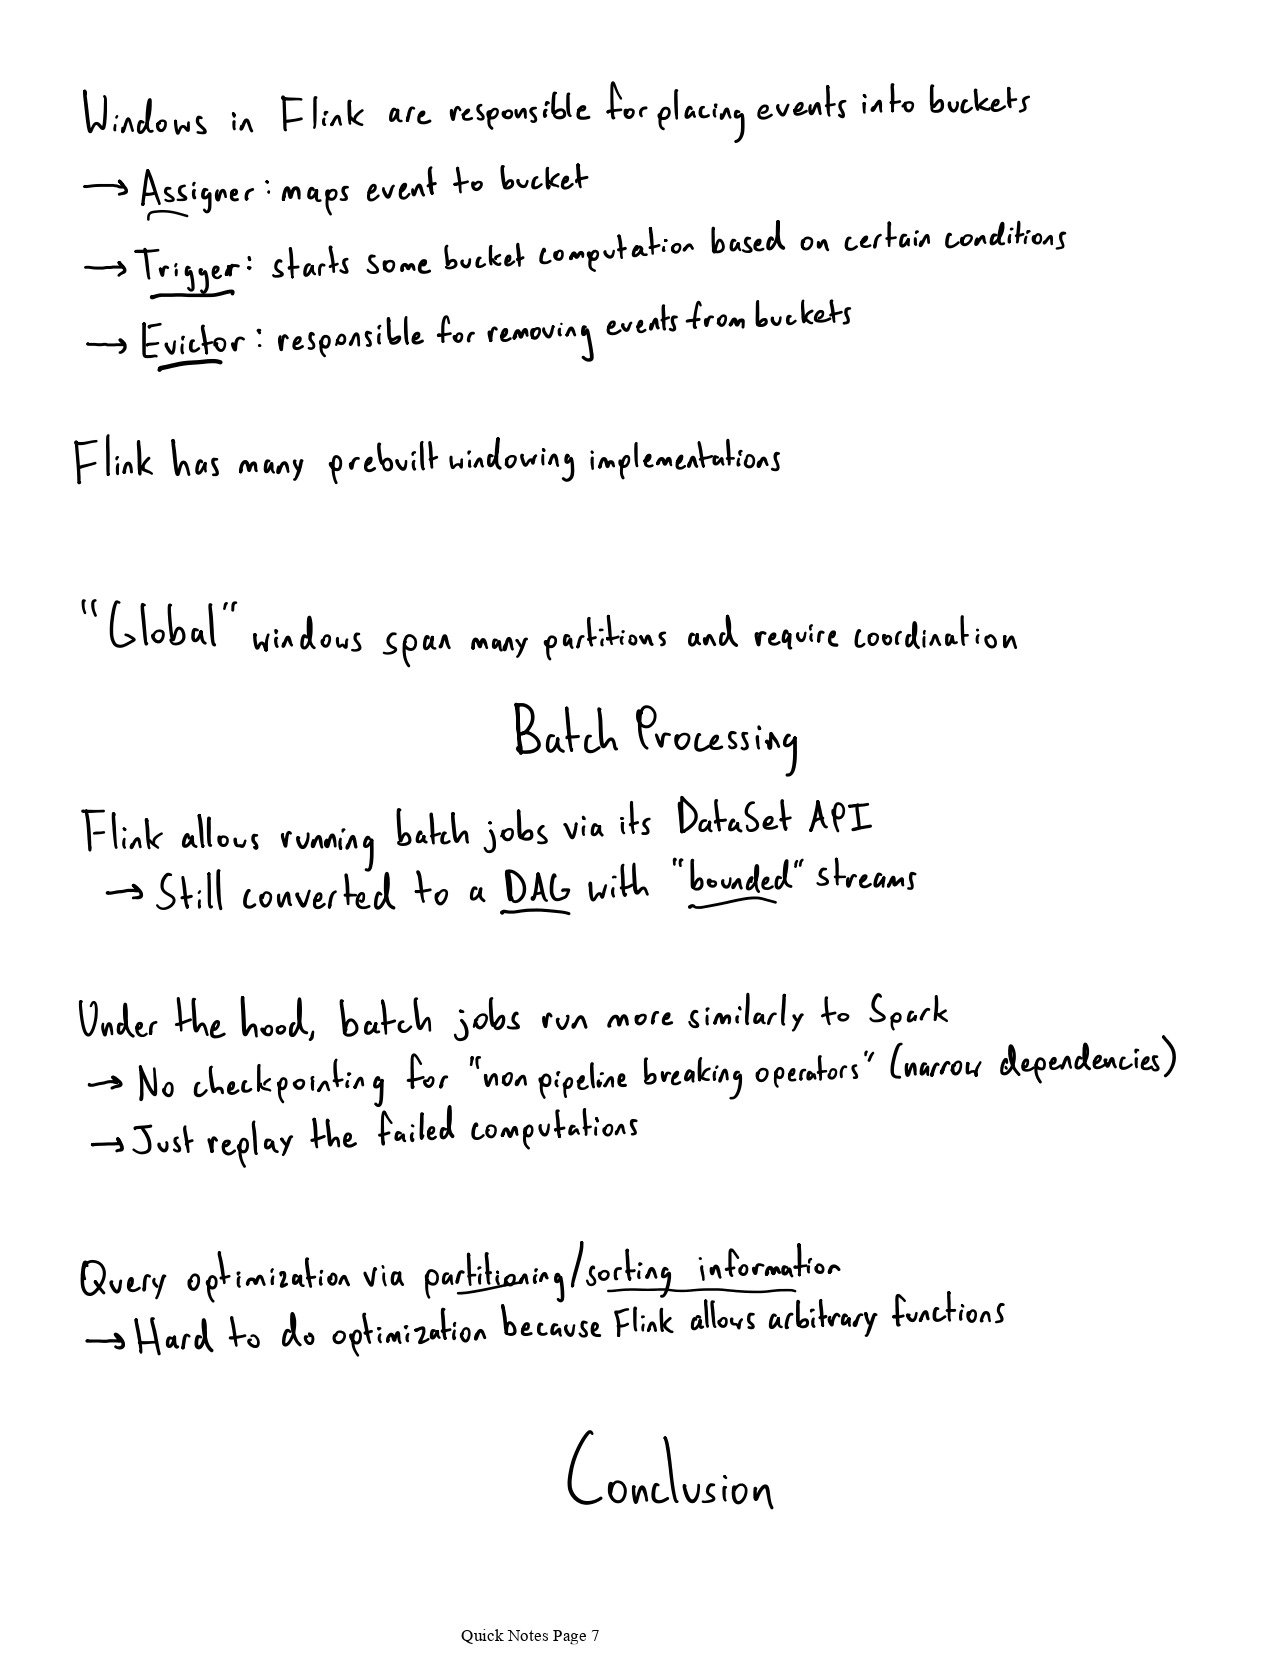 Windows in Flink are responsible for placing events into buckets
→ Assigner: maps event to bucket
→ Trigger: starts some bucket computation based on certain conditions
→ Evictor: responsible for removing events from buckets
Flink has many prebuilt windowing implementations
"Global" windows span many partitions and require coordination
Batch Processing
Flink allows running batch jobs via its DataSet API
→ Still converted to a DAG with "bounded" streams
Under the hood, batch jobs run more similarly to Spark
→ No checkpointing for "non pipeline breaking operators" (narrow dependencies)
→ Just replay the failed computations
Query optimization via partitioning/sorting information
→ Hard to do optimization because Flink allows arbitrary functions
Conclusion
Quick Notes Page 7